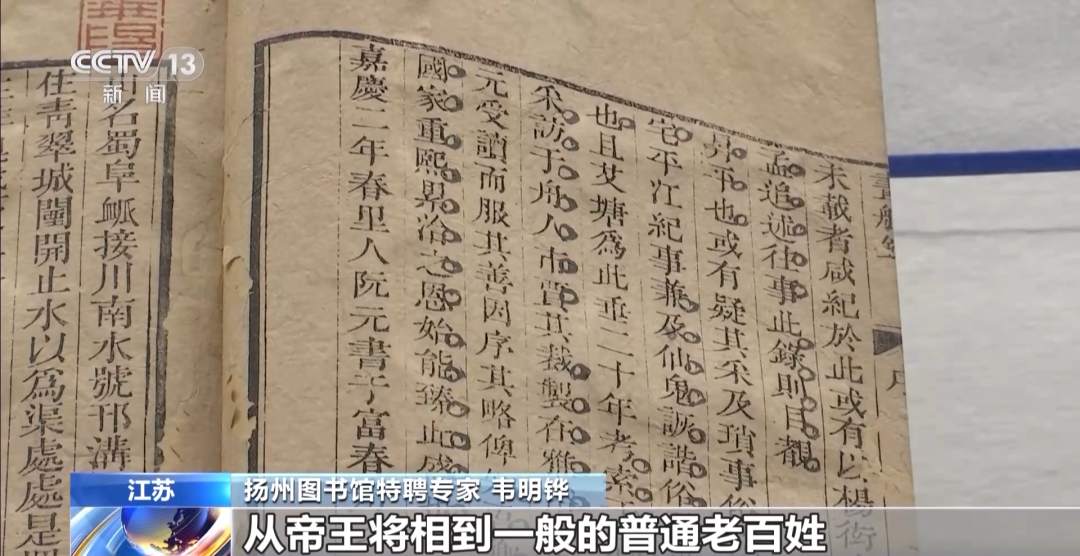 CCTV 13
新闻
未載者咸紀於此或有以楊衒
孟追述往事此錄則目覩
昇平也或有疑其采及瑣事俗
宅平江紀事兼及仙鬼詼諧俗
也且艾塘爲此垂二十年考索
采訪于舟人市賈其裁製在雅
元受讀而服其善因序其略俾
國家重熙累洽之恩始能臻此盛
嘉慶二年春里人阮元書于富春
名蜀阜衇接川南水號邗溝
住靑翠城闉開止水以爲渠處處是
江苏
扬州图书馆特聘专家 韦明铧
从帝王将相到一般的普通老百姓